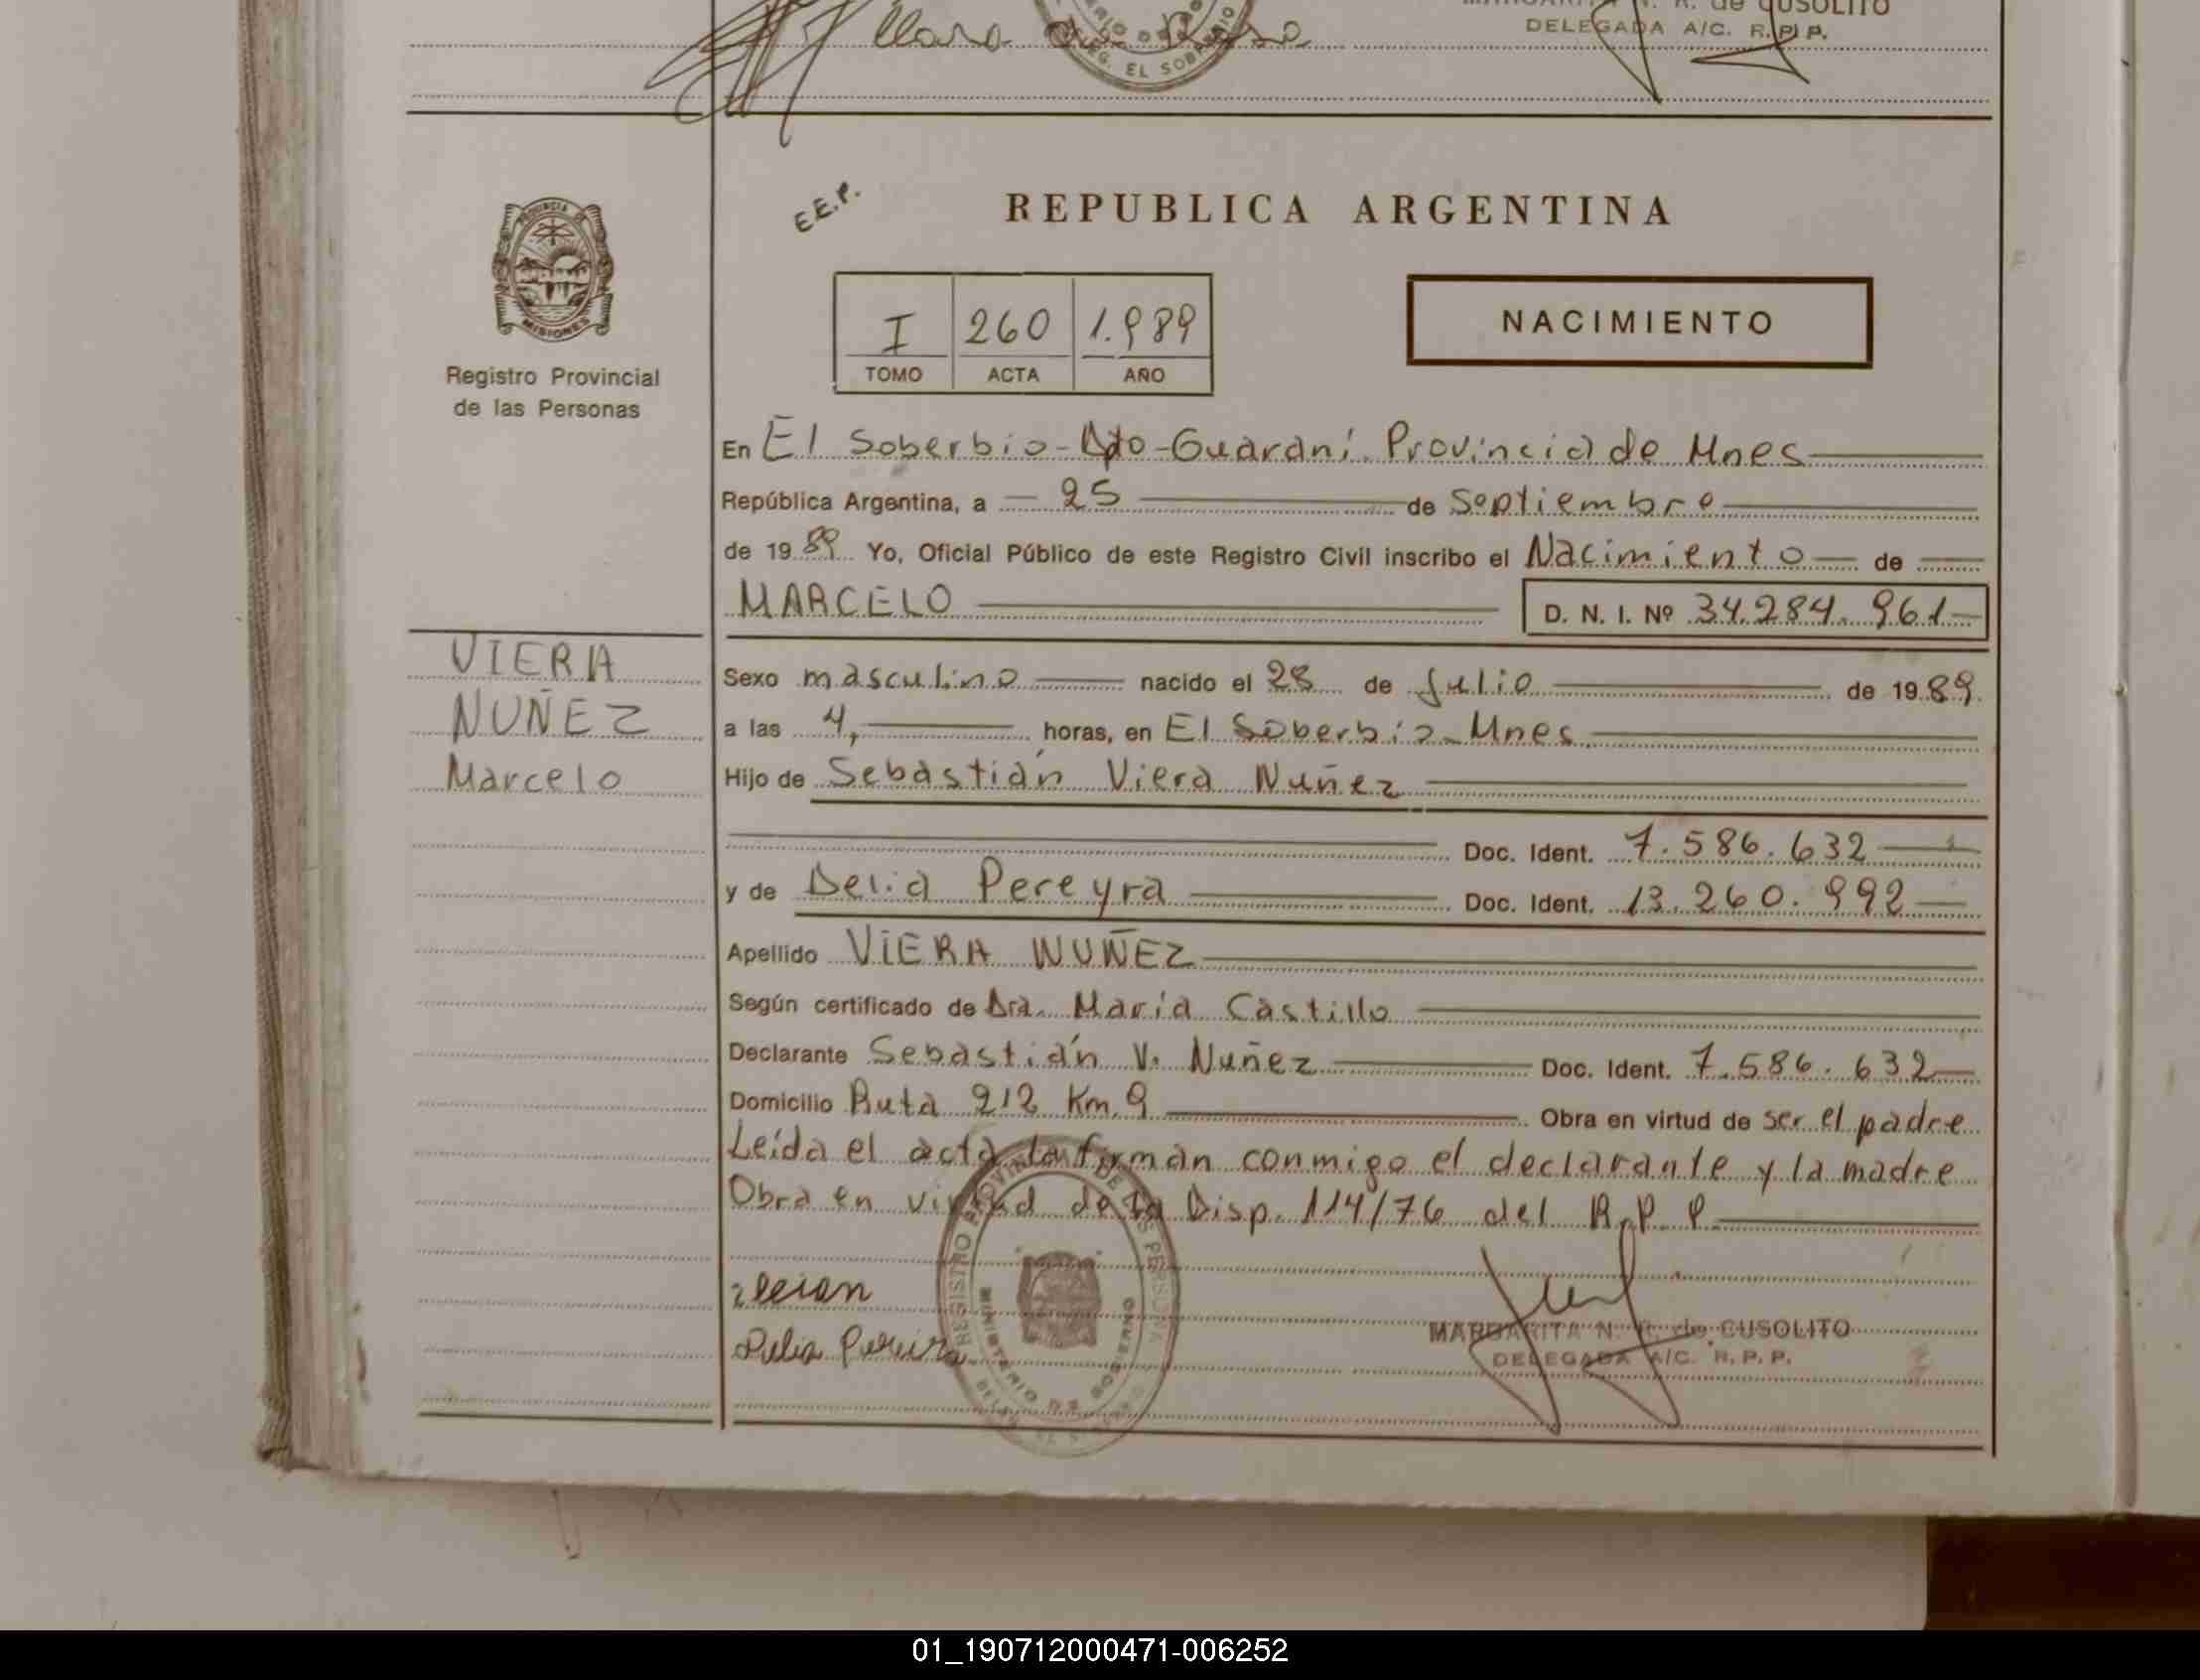 Clara da Rosa
DEG. EL SOBERBIO
R. de CUSOLITO
DELEGADA A/C. R. P. P.
PROVINCIA DE
MISIONES
Registro Provincial
de las Personas
E.E.P.
REPUBLICA ARGENTINA
I 260 1.989
TOMO ACTA AÑO
NACIMIENTO
En El Soberbio-Dpto-Guaraní Provincia de Mnes
República Argentina, a 25 de Septiembre
de 1989 Yo, Oficial Público de este Registro Civil inscribo el Nacimiento de
MARCELO D. N. I. Nº 34.284.961
VIERA
NUÑEZ
Marcelo
Sexo masculino nacido el 28 de Julio de 1989.
a las 4, horas, en El Soberbio-Mnes
Hijo de Sebastián Viera Nuñez
Doc. Ident. 7.586.632
y de Delia Pereyra Doc. Ident. 13.260.992
Apellido VIERA NUÑEZ
Según certificado de Dra. María Castillo
Declarante Sebastián V. Nuñez Doc. Ident. 7.586.632
Domicilio Ruta 212 Km. 9 Obra en virtud de ser el padre
Leída el acta la firman conmigo el declarante y la madre
Obra en virtud de la Disp. 114/76 del R.P.P.
Delia Pereira
REGISTRO PROVINCIAL DE LAS PERSONAS
MINISTERIO DE GOBIERNO
MARGARITA N. R. de CUSOLITO
DELEGADA A/C. R. P. P.
01_190712000471-006252